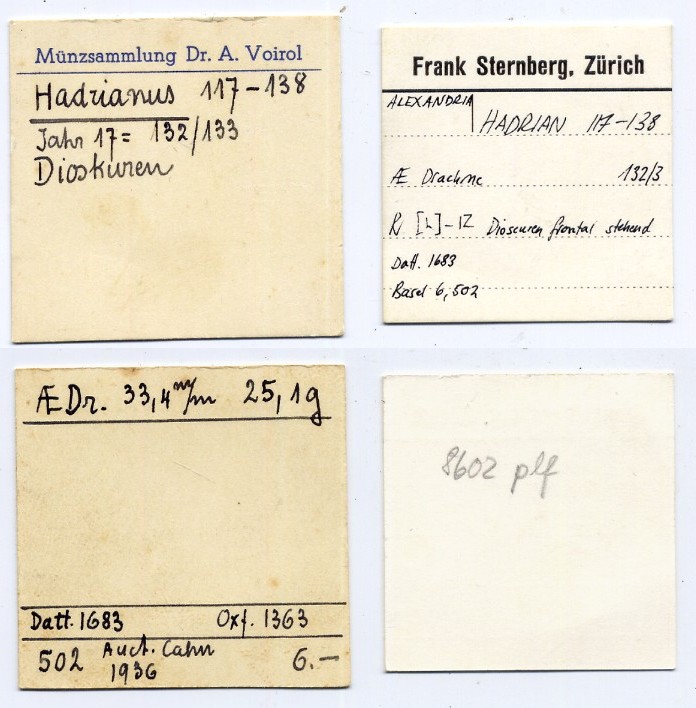 Münzsammlung Dr. A. Voirol
Hadrianus 117-138
Jahr 17= 132/133
Dioskuren
Frank Sternberg, Zürich
ALEXANDRIA
HADRIAN 117-138
Æ Drachme 132/3
R [L]-IZ Dioscuren frontal stehend
Datt. 1683
Basel 6, 502
ÆDr. 33,4 m/m 25,1g
Datt. 1683 Oxf. 1363
502 Auct. Cahn 6.-
1936
8602 plf